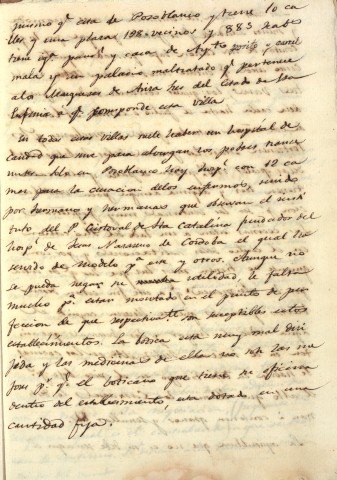 pusimo qᵉ esta de Posoblanco y tiene 10 ca
lles y una plaza 198 vecinos y 885 habts
tiene igl. parroql. y casa de Aytto. posito y carcel
mala y un palacio maltratado qᵉ pertenece
ala Marquesa de Ariza
Eufemia, a qⁿ corresponde esta villa
En todas estas villas suele haber un hospital de
caridad que sirve para alvergar los pobres transe
untes. Solo en Posoblanco hay hospˡ con 12 ca
mas para la curacion delos enfermos, servido
por hermanos y hermanas que observan el insti
tuto del P. Cristoval de Sta Catalina fundador del
hospˡ de Jesus Nazareno de Cordoba el qual ha
servido de modelo pª este y otros. Aunque no
se puede negar su utilidad, le falta
mucho pª estar montado en el punto de per
feccion de que respectivamte son suceptibles estos
establecimientos. La botica esta muy mal diri
jida y las medicinas de ellas no son las me
jores pʳ qᵉ el boticario que tiene su oficina
dentro del establecimiento, esta dotado en una
cantidad fija.